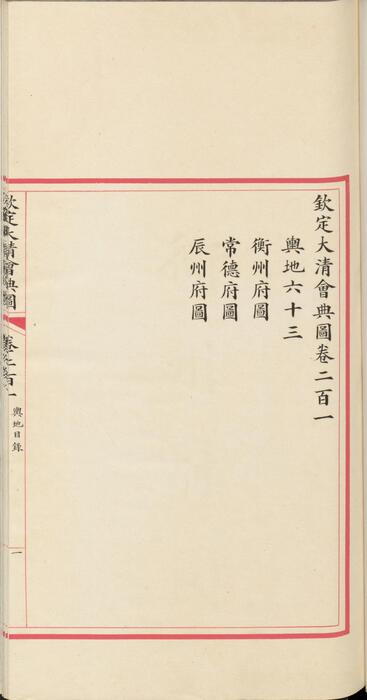 欽定大清會典圖卷二百一
輿地六十三
衡州府圖
常德府圖
辰州府圖
欽定大清會典圖
卷二百一
輿地目錄
一